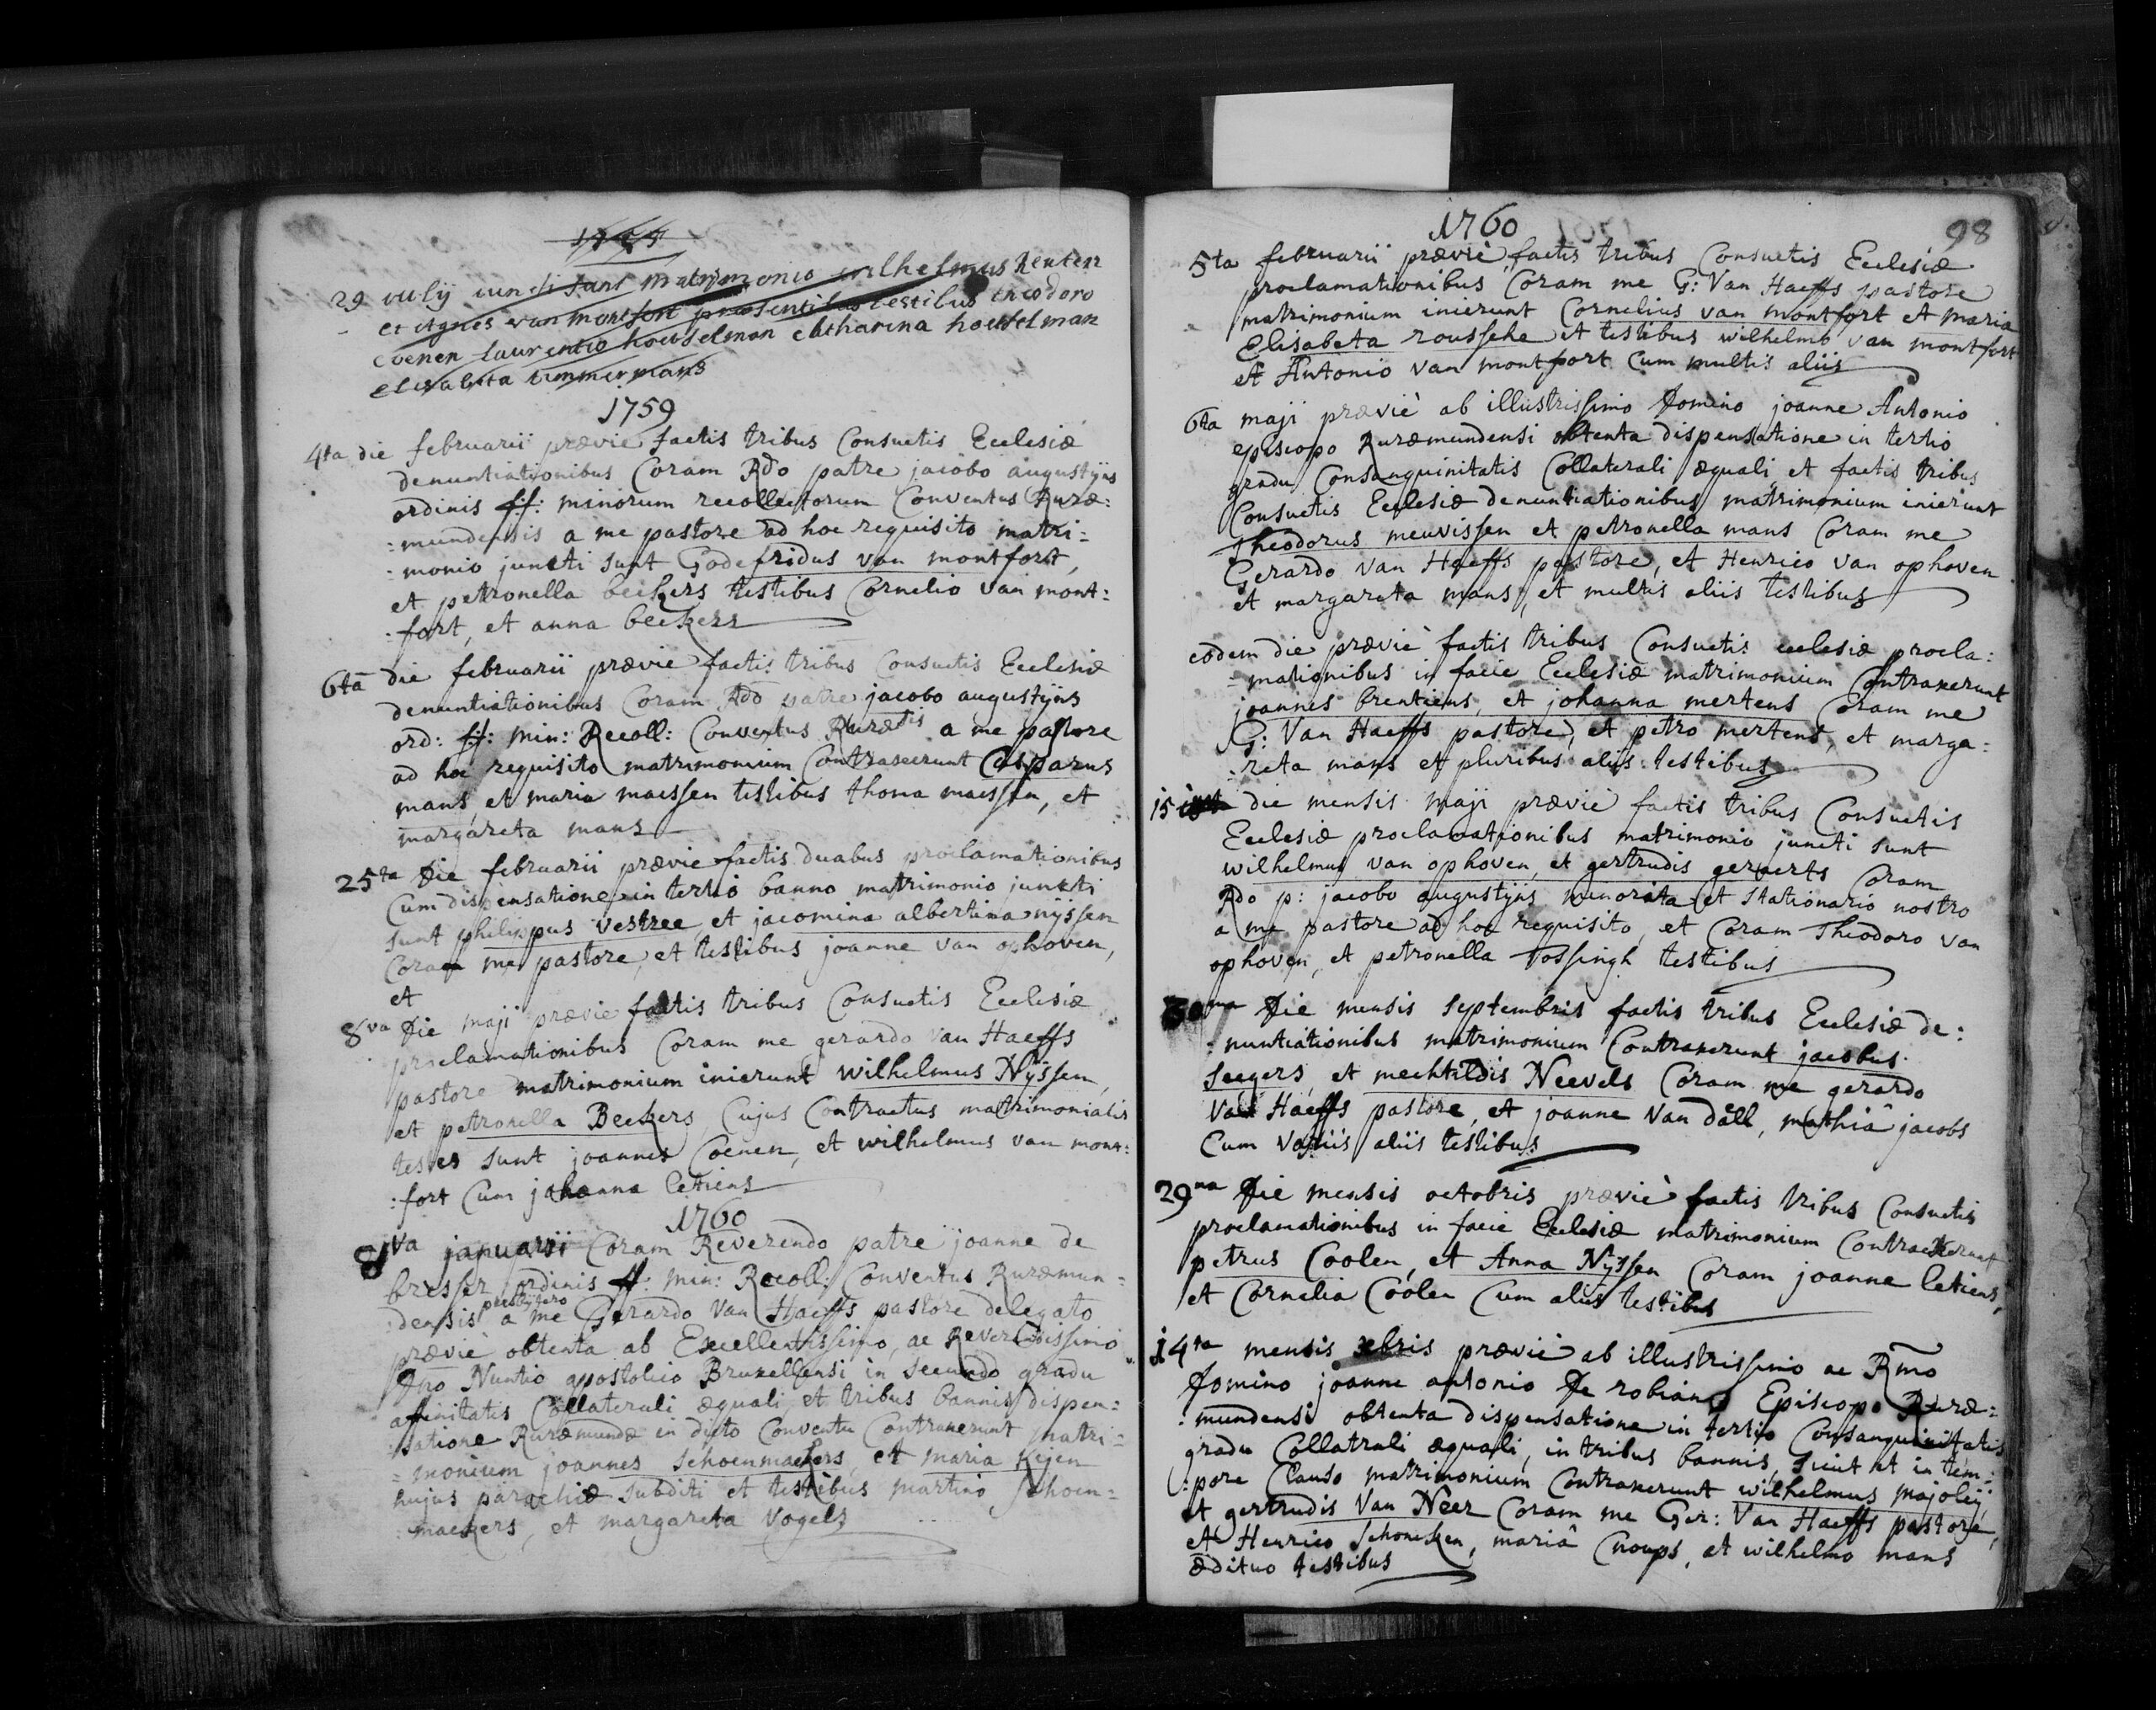 29 july juncti sunt matrimonio wilhelmus Renten
et Agnes van montfort præsentibus testibus theodoro
coenen laurentio houselman chatharina houselman
elisabeta timmermans
1759
4ta die februarii prævie factis tribus Consuetis Ecclesiæ
denuntiationibus Coram Rdo patre jacobo augustijns
ordinis ff: minorum recollectorum Conventus Ruræ:
:mundensis a me pastore ad hoc requisito matri:
:monio juncti sunt Godefridus van montfort,
et petronella beckers testibus Cornelio van mont:
:fort, et anna beckers
6ta die februarii prævie factis tribus Consuetis Ecclesiæ
denuntiationibus Coram Rdo patre jacobo augustijns
ord: ff: min: Recoll: Conventus Ruræ tis a me pastore
ad hoc requisito matrimonium Contraxerunt Casparus
mans, et maria maessen testibus thoma maessen, et
margareta mans
25ta die februarii prævie factis duabus proclamationibus
Cum dispensatione in tertio banno matrimonio juncti
sunt philippus vestree, et jacomina albertina nijssen
Coram me pastore, et testibus joanne van ophoven,
et
8va die maji prævie factis tribus Consuetis Ecclesiæ
proclamationibus Coram me gerardo van Haeffs
pastore matrimonium inierunt wilhelmus Nijssen,
et petronella Beckers, Cujus Contractus matrimonialis
testes sunt joannes Coenen, et wilhelmus van mont:
:fort Cum johanna letiens
1760
8va januarii Coram Reverendo patre joanne de
bresser ordinis ff: min: Recoll: Conventus Ruræmun=
:densis presbijtero a me Gerardo Van Haeffs pastore delegato
prævie obtenta ab Excellentissimo, ac Reverendissimo
Dno Nuntio apostolico Bruxellensi in secundo gradu
affinitatis Collaterali æquali, et tribus bannis dispen=
:satione Ruræmundæ in dicto Conventu Contraxerunt matri=
=monium joannes schoenmackers, et maria Keijen
hujus parochiæ subditi et testibus martino schoen=
:maekers, et margareta vogels
1760
98
5ta februarii prævie factis tribus Consuetis Ecclesiæ
proclamationibus Coram me G: Van Haeffs pastore
matrimonium inierunt Cornelius van montfort et maria
Elisabeta roussche et testibus wilhelmo van montfort
et Antonio van montfort Cum multis aliis
6ta maji prævie ab illustrissimo Domino joanne Antonio
episcopo Ruræmundensi obtenta dispensatione in tertio
gradu Consanguinitatis Collaterali æquali, et factis tribus
Consuetis Ecclesiæ denuntiationibus matrimonium inierunt
Theodorus meuvissen et petronella mans Coram me
Gerardo van Haeffs pastore, et Henrico van ophoven
et margareta mans, et multis aliis testibus
eodem die prævie factis tribus Consuetis ecclesiæ procla:
=mationibus in facie Ecclesiæ matrimonium Contraxerunt
joannes brentiens, et johanna mertens Coram me
G: Van Haeffs pastore, et petro mertens, et marga=
:reta mans et pluribus aliis testibus
15 die mensis maji prævie factis tribus Consuetis
Ecclesiæ proclamationibus matrimonio juncti sunt
wilhelmus van ophoven, et gertrudis geraerts Coram
Rdo p: jacobo augustijns minorita et stationario nostro
a me pastore ad hoc requisito, et Coram Theodoro van
ophoven, et petronella vossingh testibus
die mensis septembris factis tribus Ecclesiæ de:
:nuntiationibus matrimonium Contraxerunt jacobus
seegers, et mechtildis Neevels Coram me gerardo
Van Haeffs pastore, et joanne Van dall, mathiâ jacobs
Cum variis aliis testibus
29na die mensis octobris prævie factis tribus Consuetis
proclamationibus in facie Ecclesiæ matrimonium Contraxerunt
petrus Coolen, et Anna Nijssen Coram joanne letiens,
et Cornelia Coolen Cum aliis testibus
14ta mensis xbris prævie ab illustrissimo ac Rmo
Domino joanne antonio De robiano Episcopo Ruræ=
:mundensi obtenta dispensatione in tertio Consanguinitatis
gradu Collatrali æquali, in tribus bannis, sicut et in tem:
:pore Clauso matrimonium Contraxerunt wilhelmus majoleij
et gertrudis Van Neer Coram me Ger: Van Haeffs pastore,
et Henrico schoncken, mariâ Cnoups, et wilhelmo mans
ædituo testibus